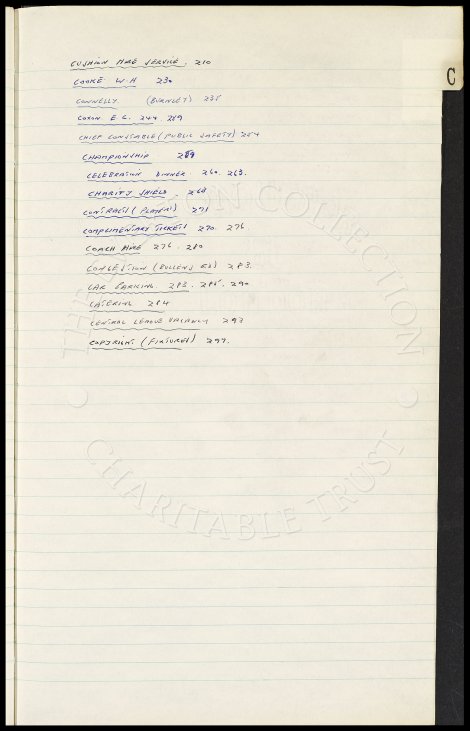 C
CUSHION HIRE SERVICE. 210
COOKE W.H 230
CONNELLY (BURNLEY) 235
COXON E C. 244 259
CHIEF CONSTABLE (PUBLIC SAFETY) 254
CHAMPIONSHIP 259
CELEBRATION DINNER 260. 263.
CHARITY SHIELD. 268
CONTRACTS (PLAYERS) 271
COMPLIMENTARY TICKETS 270. 276.
COACH HIRE 276. 280
CONGESTION (BULLENS RD) 283.
CAR PARKING. 283. 285. 290
CATERING 284
CENTRAL LEAGUE VACANCY 293
COPYRIGHT (FIXTURES) 297.
COLLECTION
CHARITABLE TRUST